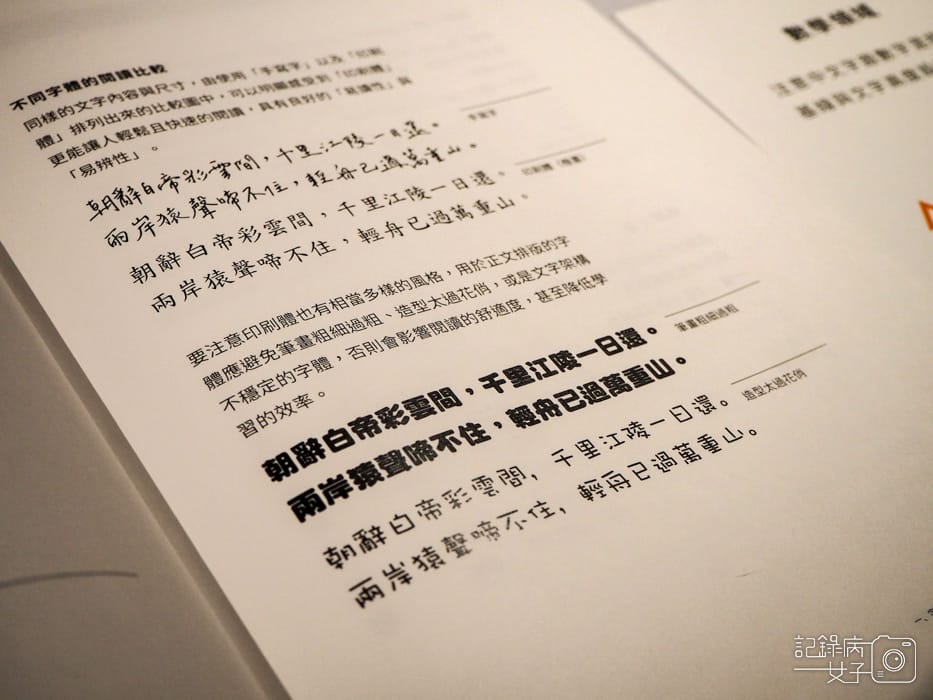 不同字體的閱讀比較
同樣的文字內容與尺寸，由使用「手寫字」以及「印刷
體」排列出來的比較圖中，可以明顯感受到「印刷體」
更能讓人輕鬆且快速的閱讀，具有良好的「易讀性」與
「易辨性」。
手寫字
朝辭白帝彩雲間，千里江陵一日還。
兩岸猿聲啼不住，輕舟已過萬重山。
印刷體（楷書）
朝辭白帝彩雲間，千里江陵一日還。
兩岸猿聲啼不住，輕舟已過萬重山。
要注意印刷體也有相當多樣的風格，用於正文排版的字
體應避免筆畫粗細過粗、造型太過花俏，或是文字架構
不穩定的字體，否則會影響閱讀的舒適度，甚至降低學
習的效率。
筆畫粗細過粗
朝辭白帝彩雲間，千里江陵一日還。
兩岸猿聲啼不住，輕舟已過萬重山。
造型太過花俏
朝辭白帝彩雲間，千里江陵一日還。
兩岸猿聲啼不住，輕舟已過萬重山。
數學領域
注意中文字跟數字
基線與文字高度
記錄病
女子